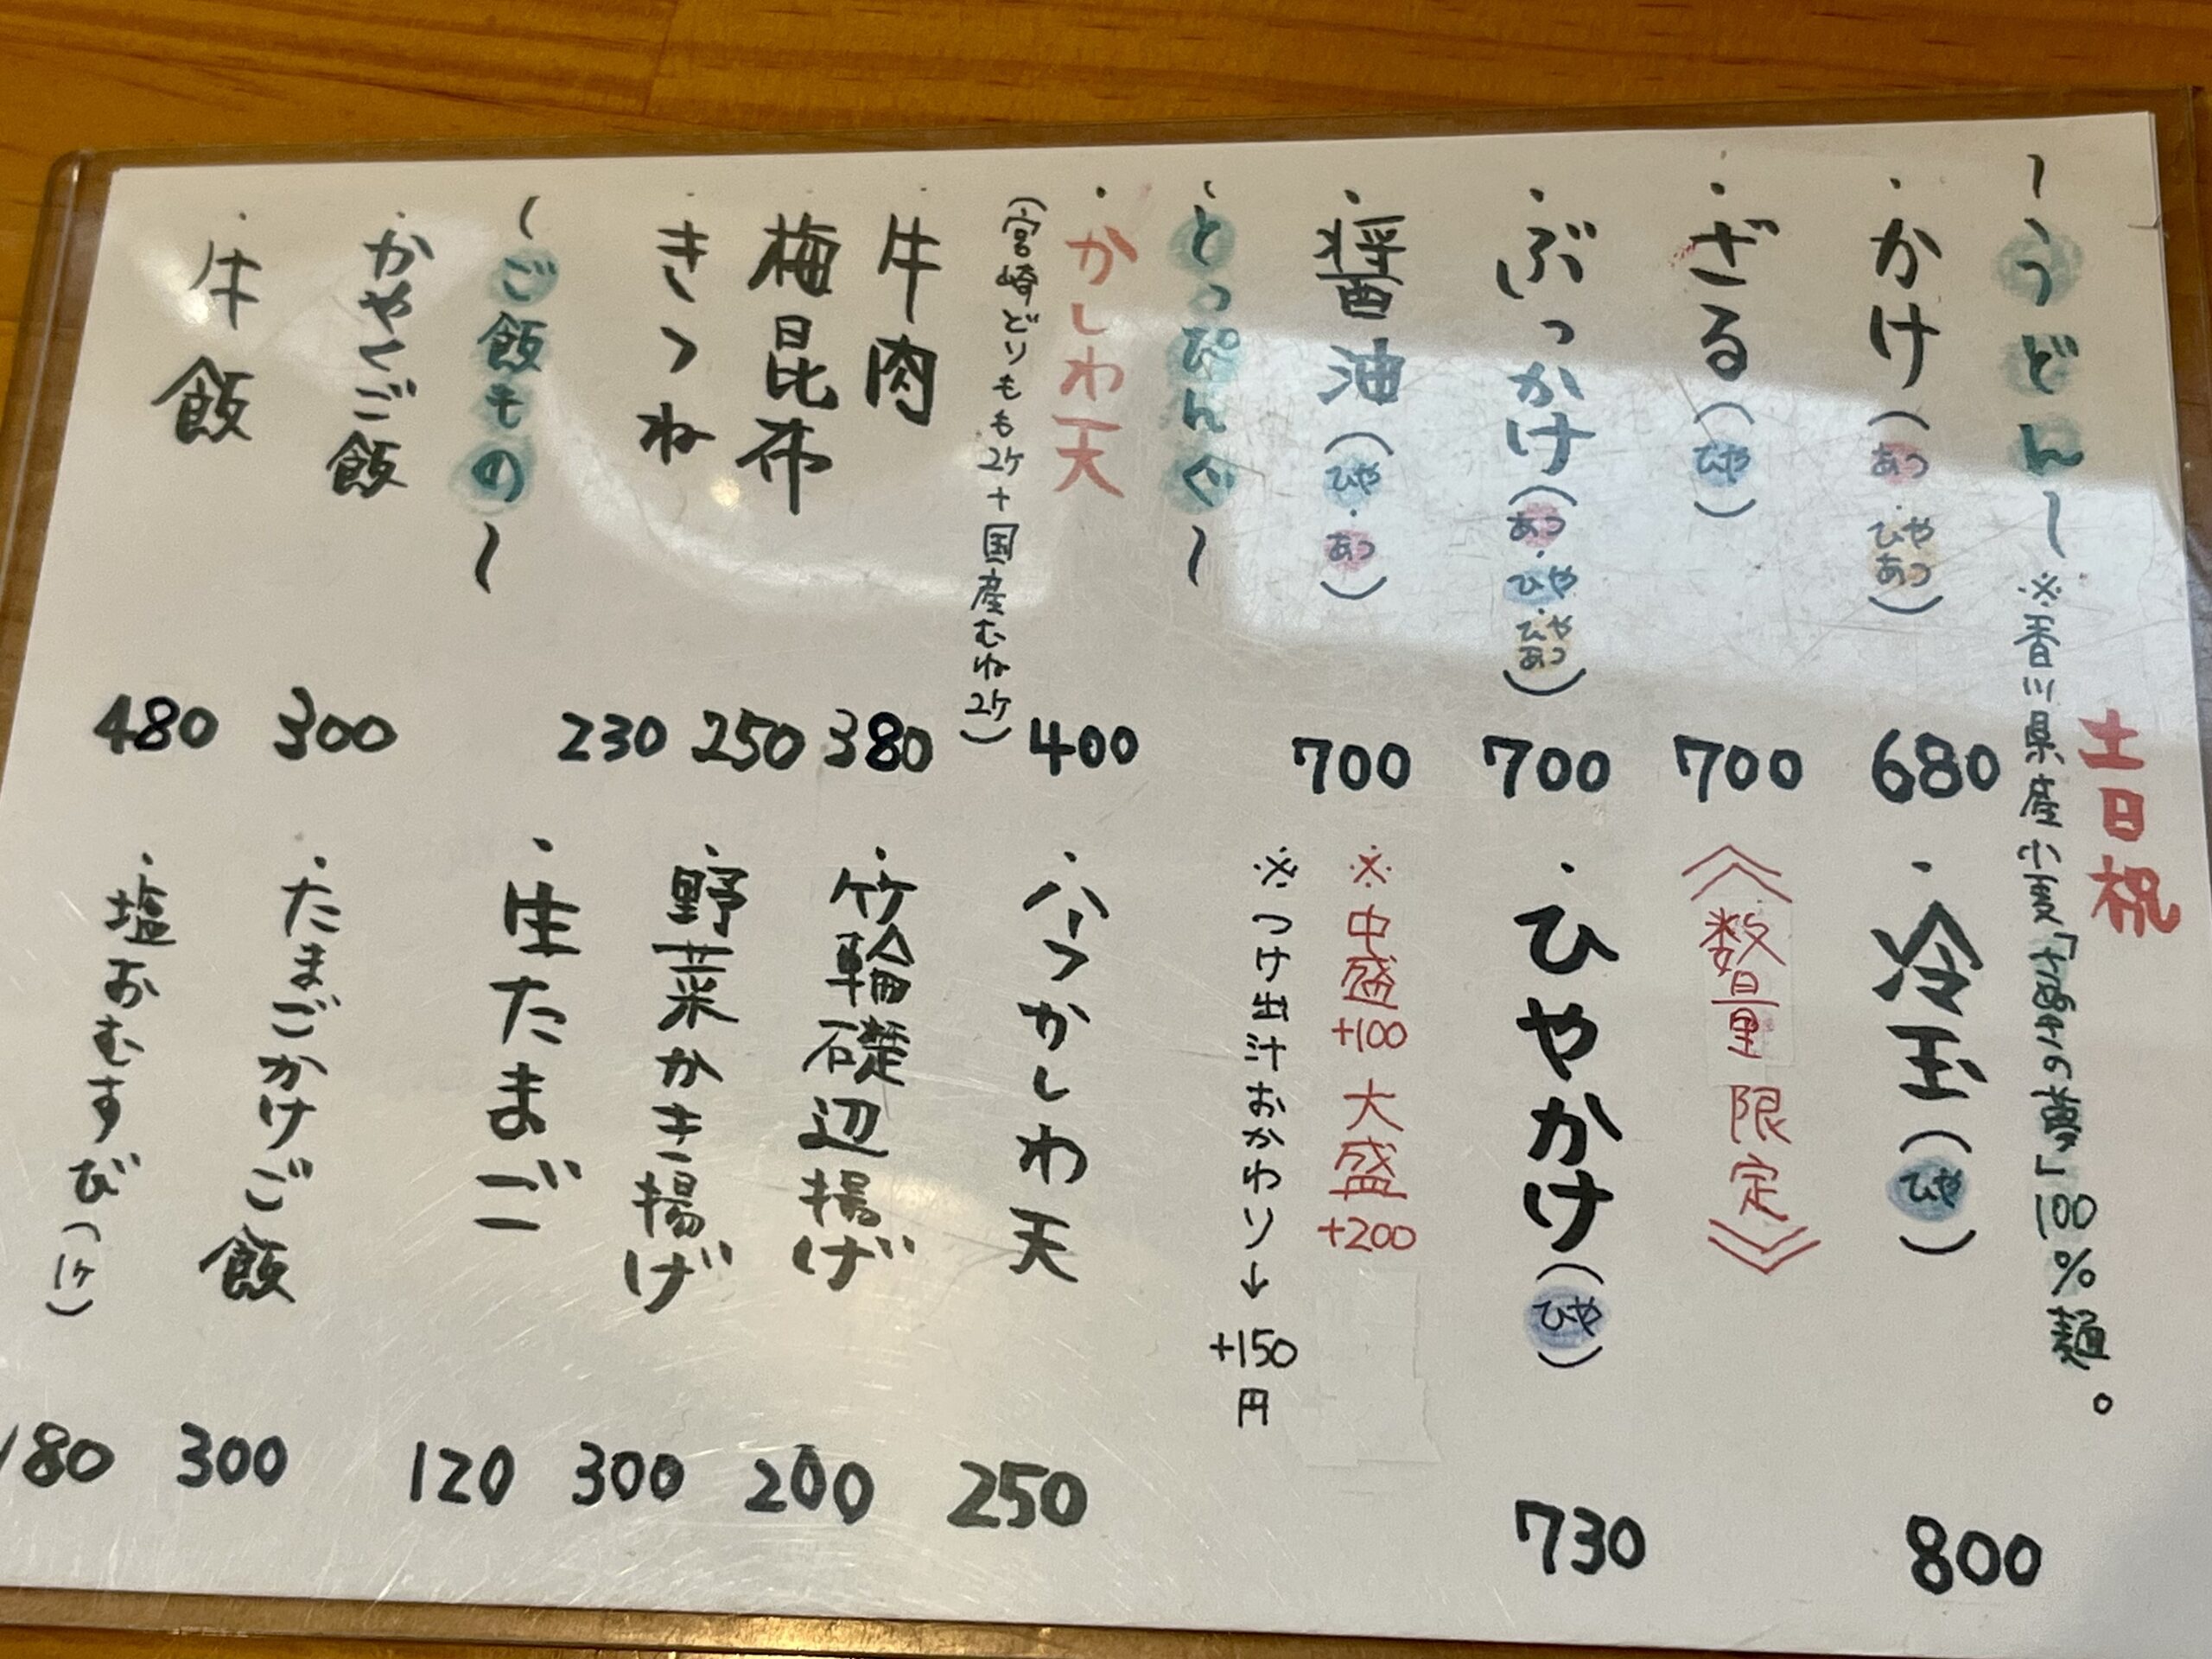 土日祝
~うどん~ ※香川県産小麦「さぬきの夢」100%麺。
・かけ(あつ・ひやあつ) 680
・冷玉(ひや) 800
・ざる(ひや) 700
《数量限定》
・ぶっかけ(あつ・ひや・ひやあつ) 700
・ひやかけ(ひや) 730
・醤油(ひや・あつ) 700
※中盛+100 大盛+200
※つけ出汁おかわり→+150円
~とっぴんぐ~
・かしわ天 400
(宮崎どりもも2ケ+国産むね2ケ)
・ハーフかしわ天 250
・牛肉 380
・竹輪磯辺揚げ 200
・梅昆布 250
・野菜かき揚げ 300
・きつね 230
・生たまご 120
~ご飯もの~
・かやくご飯 300
・たまごかけご飯 300
・牛飯 480
・塩おむすび(1ケ) 180